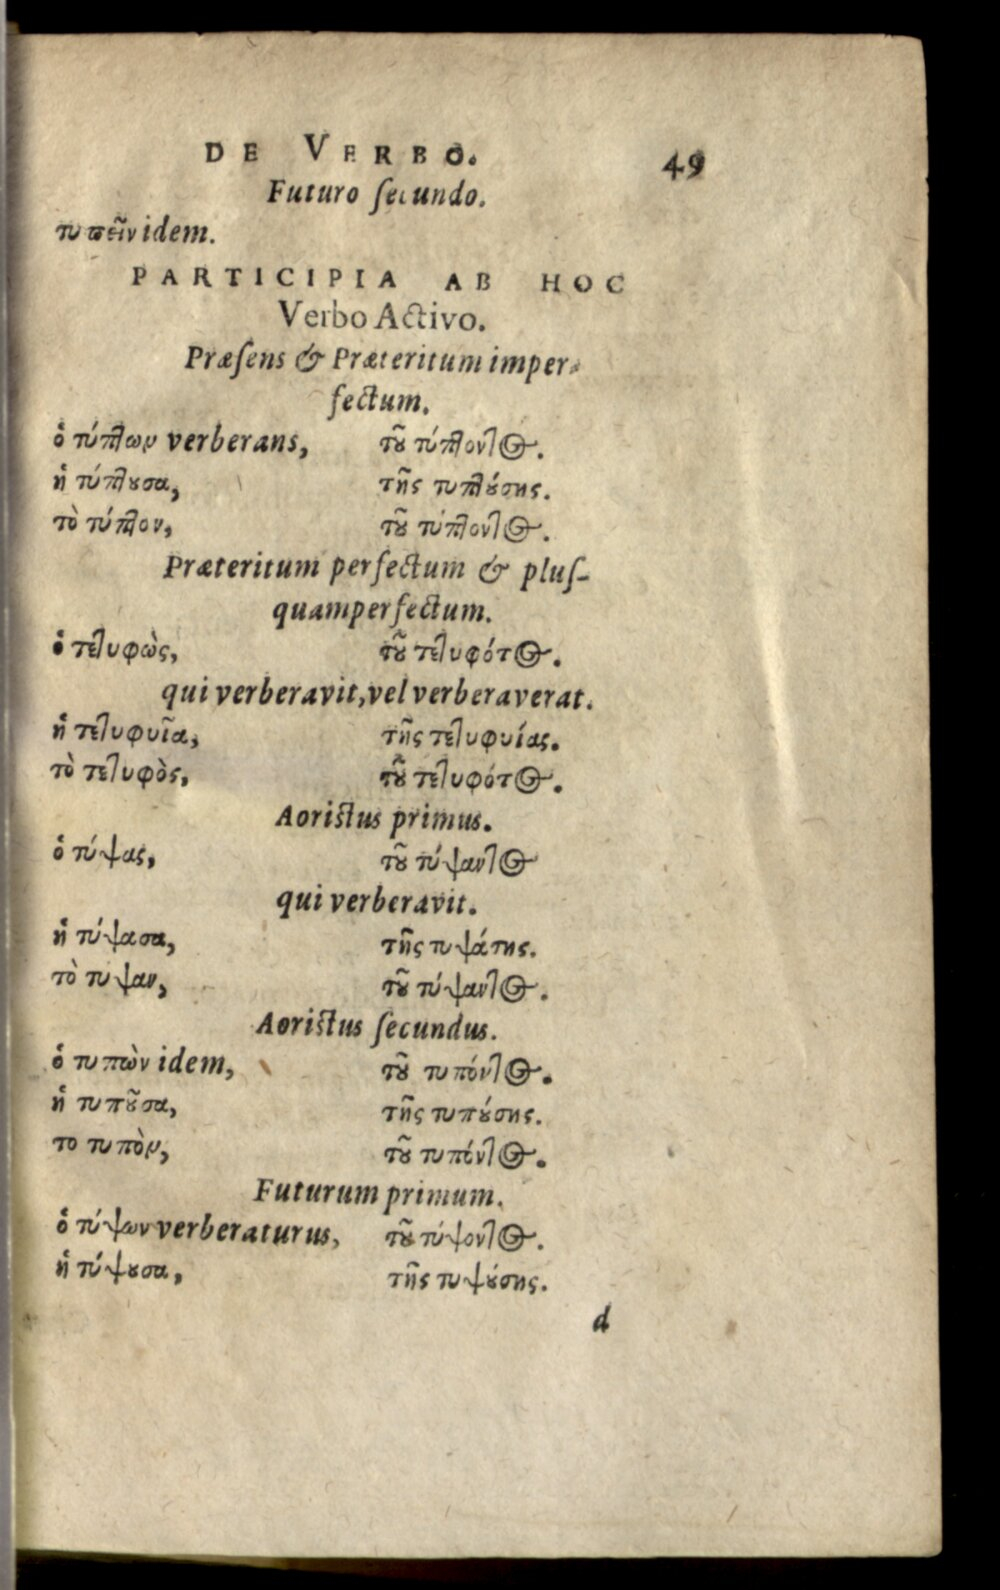 DE VERBO. 49
Futuro ſecundo.
τυπεῖν idem.
PARTICIPIA AB HOC
Verbo Activo.
Præſens & Præteritum imper-
fectum.
ὁ τύπτων verberans, τοῦ τύπτοντος.
ἡ τύπτουσα, τῆς τυπτούσης.
τὸ τύπτον, τοῦ τύπτοντος.
Præteritum perfectum & pluſ-
quamperfectum.
ὁ τετυφὼς, τοῦ τετυφότος.
qui verberavit, vel verberaverat.
ἡ τετυφυῖα, τῆς τετυφυίας.
τὸ τετυφὸς, τοῦ τετυφότος.
Aoriſtus primus.
ὁ τύψας, τοῦ τύψαντος
qui verberavit.
ἡ τύψασα, τῆς τυψάτης.
τὸ τυψαν, τοῦ τύψαντος.
Aoriſtus ſecundus.
ὁ τυπὼν idem, τοῦ τυπόντος.
ἡ τυποῦσα, τῆς τυπούσης.
το τυπὸν, τοῦ τυπόντος.
Futurum primum.
ὁ τύψων verberaturus, τοῦ τύψοντος.
ἡ τύψουσα, τῆς τυψούσης.
d